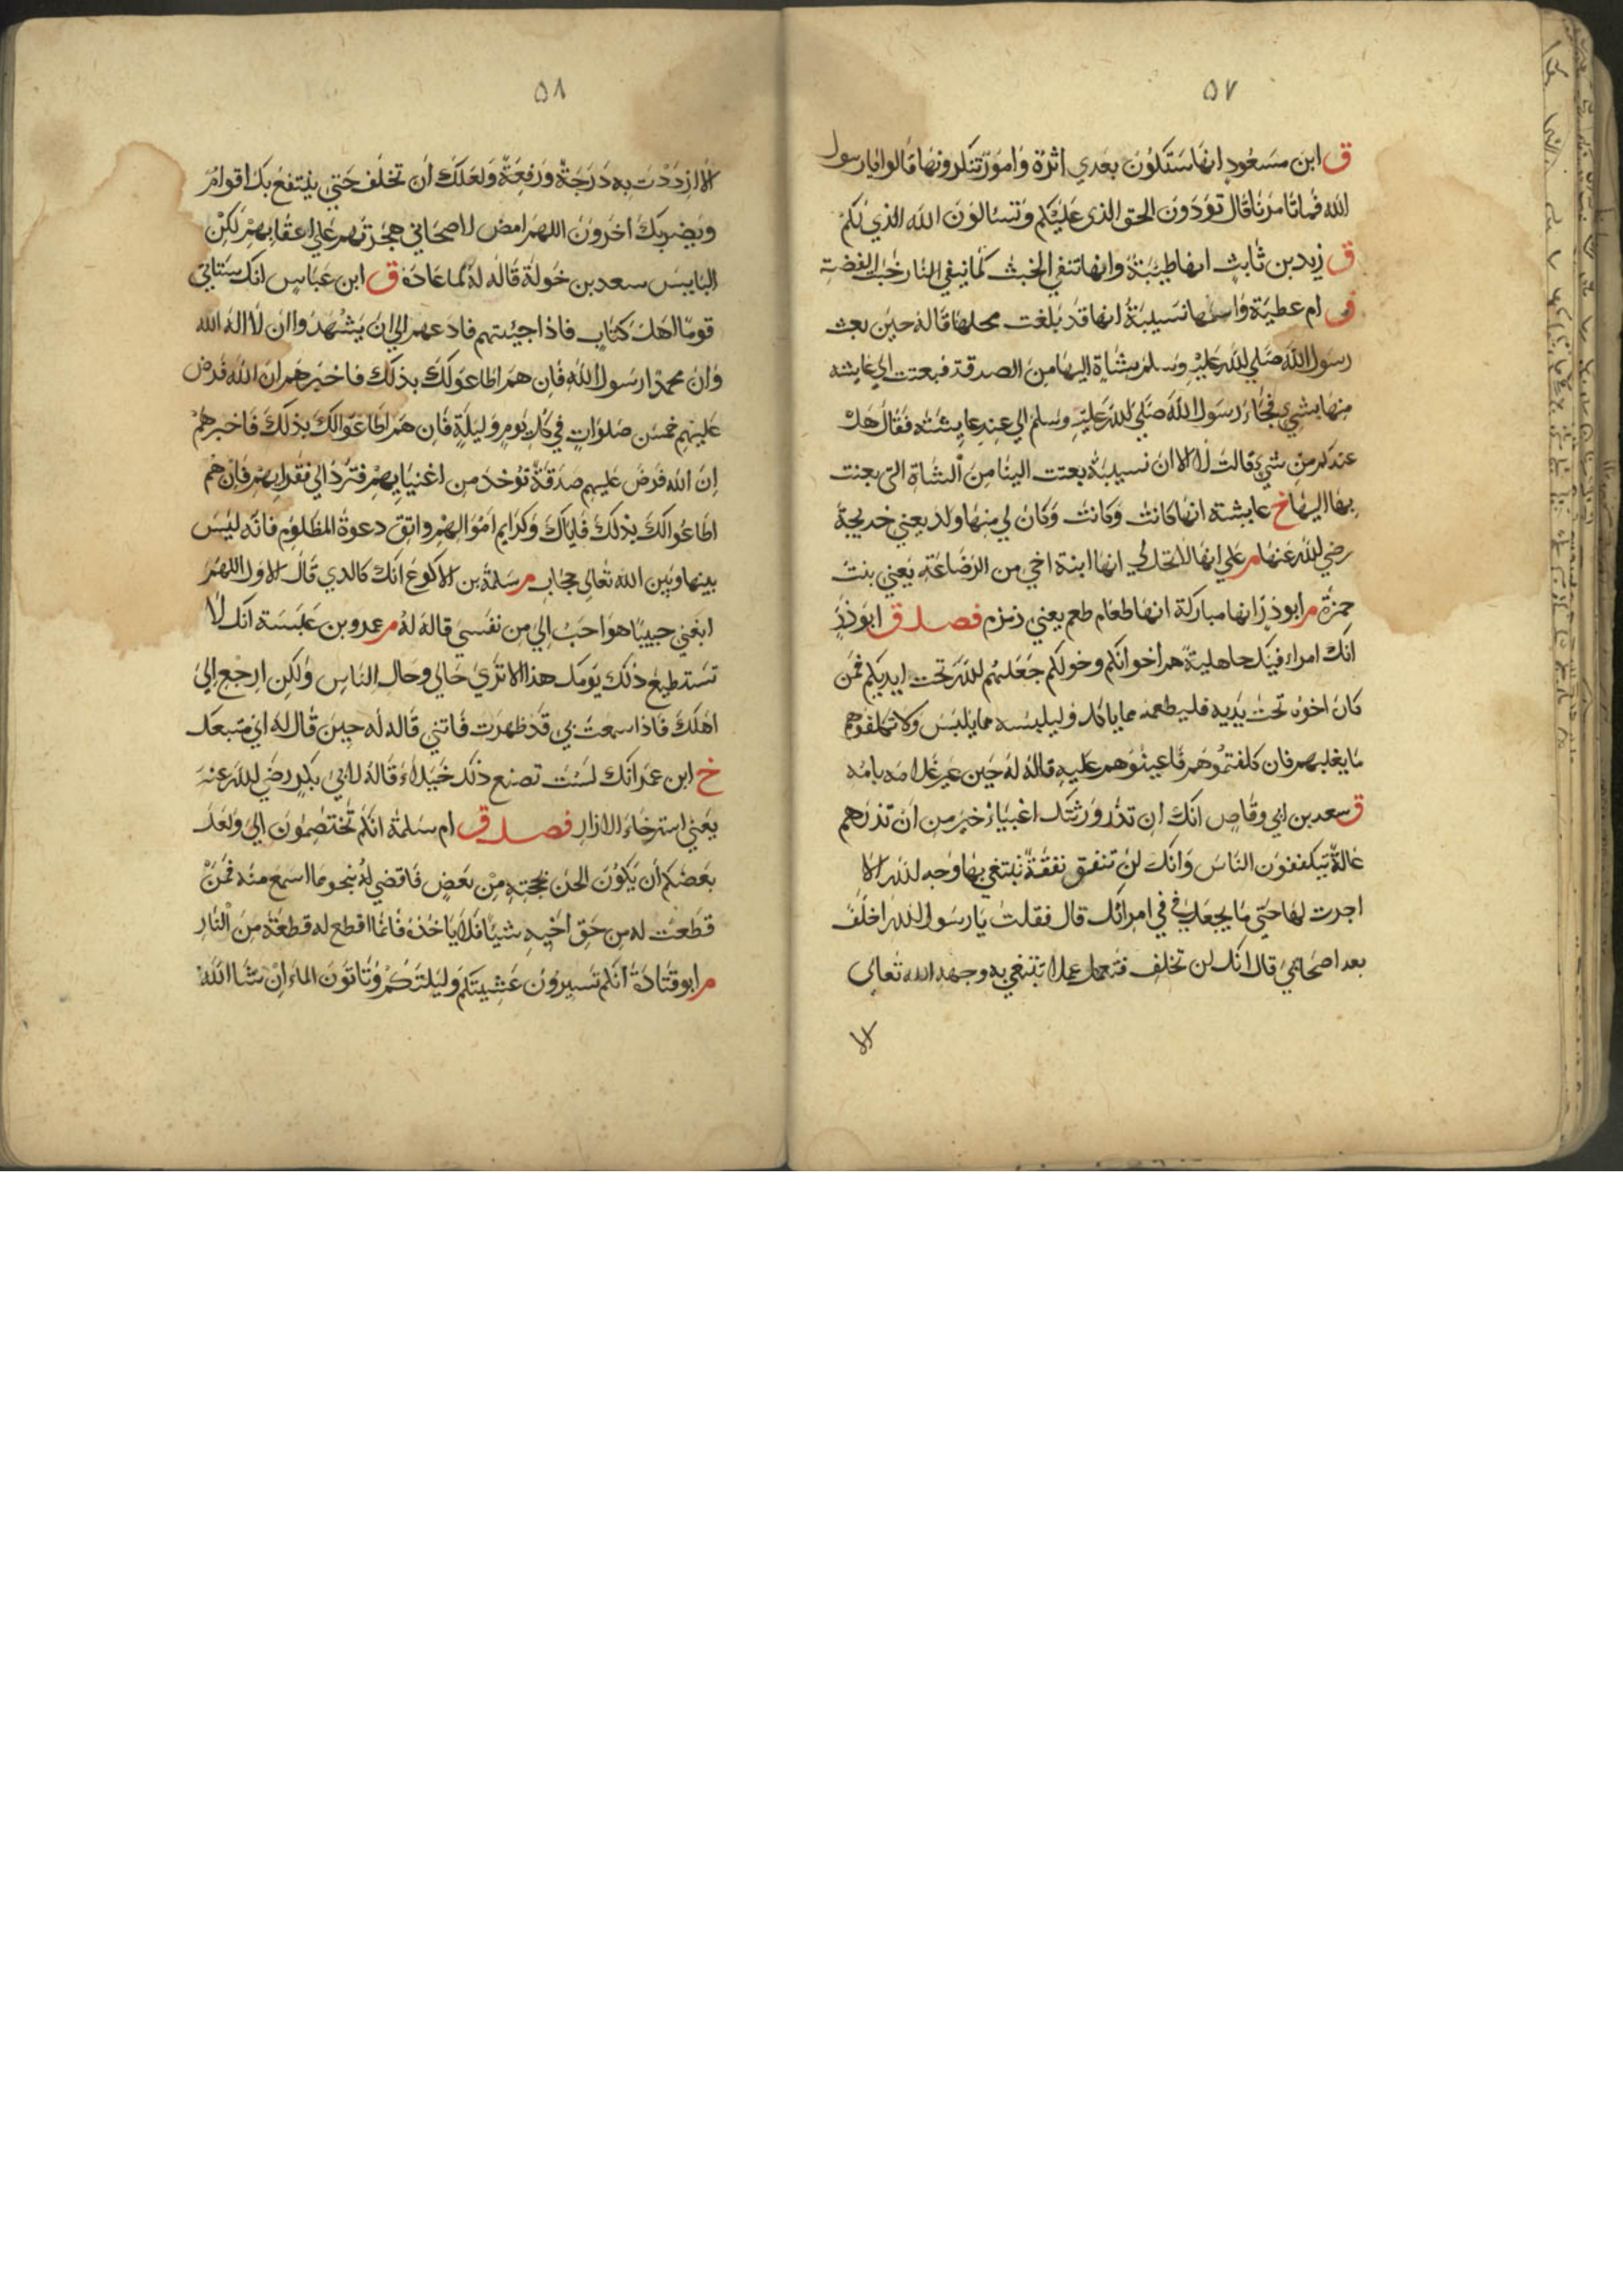 ٥٧
ق ابن مسعود انها ستكون بعدي اثرة وامور تنكرونها قالوا يا رسول
الله فما تامرنا قال تؤدون الحق الذي عليكم وتسالون الله الذي لكم
ق زيد بن ثابت انها طيبة وانها تنفي الخبث كما ينفي النار خبث الفضة
ق ام عطية واسمها نسيبة انها قد بلغت محلها قاله حين بعث
رسول الله صلي الله عليه وسلم بشاة اليها من الصدقة فبعثت الي عايشه
منها بشي فجاء رسول الله صلي الله عليه وسلم الي عند عايشته فقال هل
عندكم من شي قالت لا الا ان نسيبة بعثت الينا من الشاة التي بعثت
بها اليها خ عايشة انها كانت وكانت وكان لي منها ولد يعني خديجة
رضي الله عنها م علي انها لا تحل لي انها ابنة اخي من الرضاعة يعني بنت
حمزة م ابو ذر انها مباركة انها طعام طعم يعني زمزم فصل ق ابو ذر
انك امراء فيك جاهلية هم اخوانكم وخولكم جعلهم الله تحت ايديكم فمن
كان اخوه تحت يديه فليطعمه مما ياكل وليلبسه مما يلبس ولا تكلفوهم
ما يغلبهم فان كلفتموهم فاعينوهم عليه قاله له حين عير غلامه بامه
ق سعد بن ابي وقاص انك ان تذر ورثتك اغنياء خير من ان تذرهم
عالة يتكففون الناس وانك لن تنفق نفقة تبتغي بها وجه الله الا
اجرت لها حتي ما يجعل في في امراتك قال فقلت يا رسول الله اخلف
بعد اصحابي قال انك لن تخلف فتعمل عملا تبتغي به وجهه الله تعالى
الا
٥٨
الا ازددت به درجة ورفعة ولعلك ان تخلف حتي ينتفع بك اقوام
ويضر بك اخرون اللهم امض لاصحابي هجرتهم ولا تردهم علي اعقابهم لكن
البايس سعد بن خولة قاله له لما عاده ق ابن عباس انك ستاتي
قوما اهل كتاب فاذا جيتهم فادعهم الي ان يشهدوا ان لا اله الا الله
وان محمدا رسول الله فان هم اطاعوا لك بذلك فاخبرهم ان الله فرض
عليهم خمس صلوات في كل يوم وليلة فان هم اطاعوا لك بذلك فاخبرهم
ان الله فرض عليهم صدقة توخذ من اغنيايهم فترد الي فقرايهم فان هم
اطاعوا لك بذلك فاياك وكرايم اموالهم واتق دعوة المظلوم فانه ليس
بينها وبين الله تعالي حجاب م سلمة بن الاكوع انك كالذي قال الاول اللهم
ابغني حبيبا هو احب الي من نفسي قاله له م عمرو بن عبسة انك لا
تستطيع ذلك يومك هذا الا تري حالي وحال الناس ولكن ارجع الي
اهلك فاذا سمعت بي قد ظهرت فاتني قاله له حين قال له اني متبعك
خ ابن عمر انك لست تصنع ذلك خيلاء قاله لابي بكر رضي الله عنه
يعني استرخاء الازار فصل ق ام سلمة انكم تختصمون الي ولعل
بعضكم ان يكون الحن بحجته من بعض فاقضي له بنحو ما اسمع منه فمن
قطعت له من حق اخيه شيئا فلا ياخذه فانما اقطع له قطعة من النار
م ابو قتادة انكم تسيرون عشيتكم وليلتكم وتاتون الماء ان شا الله